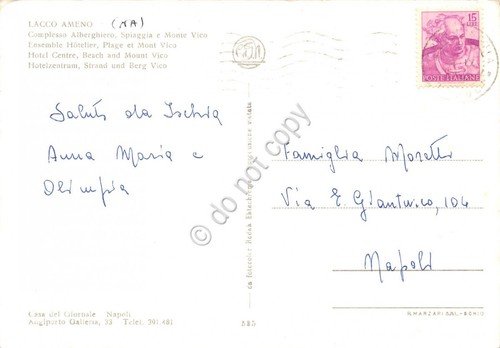 LACCO AMENO (NA)
Complesso Alberghiero, Spiaggia e Monte Vico
Ensemble Hôtelier, Plage et Mont Vico
Hotel Centre, Beach and Mount Vico
Hotelzentrum, Strand und Berg Vico
15
LIRE
POSTE ITALIANE
Saluti da Ischia
Anna Maria e
Olimpia
Famiglia Moretti
Via E. Gianturco, 104
Napoli
do not copy
vietata
Casa del Giornale Napoli
Angiporto Galleria, 33 Telef. 391.481